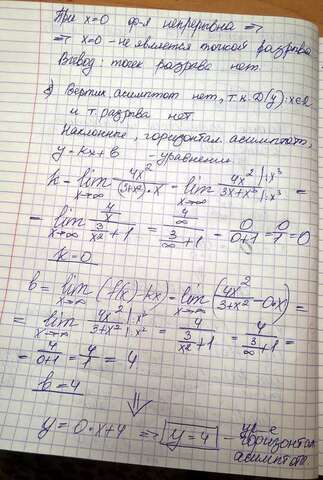 При x=0 ф-я непрерывна =>
=> x=0 - не является точкой разрыва
Вывод: точек разрыва нет.
Вертик. асимптот нет, т.к. D(y): x∈R
и т. разрыва нет.
Наклонные, горизонтал. асимптоты,
y=kx+b - уравнение
k=lim x→∞ 4x²/((3+x²)·x) = lim x→∞ 4x² |:x³/(3x+x³ |:x³) =
= lim x→∞ (4/x)/(3/x²+1) = (4/∞)/(3/∞+1) = 0/(0+1) = 0/1 = 0
k=0
b = lim x→∞ (f(x)-kx) = lim x→∞ (4x²/(3+x²) - 0·x) =
= lim x→∞ 4x² |:x²/(3+x² |:x²) = 4/(3/x²+1) = 4/(3/∞+1) =
= 4/(0+1) = 4/1 = 4
b=4
⇓
y=0·x+4 => y=4 - ур-е
горизонтал.
асимптоты.